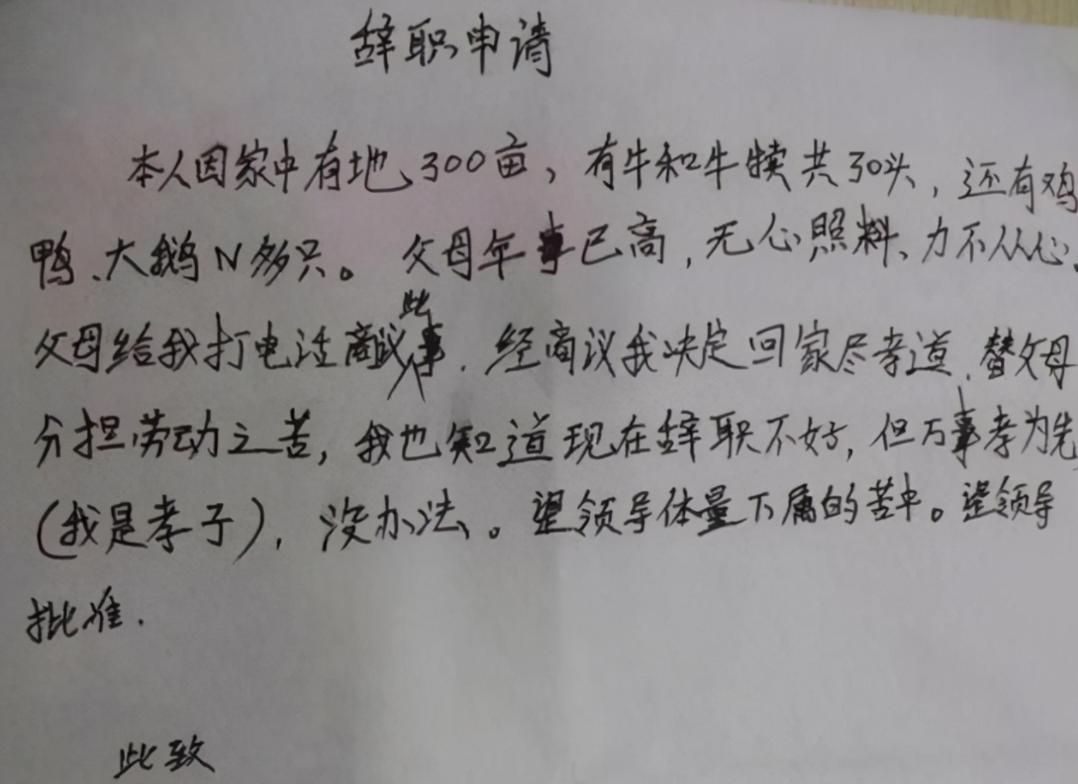 辞职申请
本人因家中有地300亩,有牛和牛犊共30头,还有鸡
鸭、大鹅N多只。父母年事已高,无心照料、力不从心。
父母给我打电话商议此事,经商议我决定回家尽孝道,替父母
分担劳动之苦,我也知道现在辞职不好,但万事孝为先
(我是孝子),没办法。望领导体量下属的苦中。望领导
批准.
此致